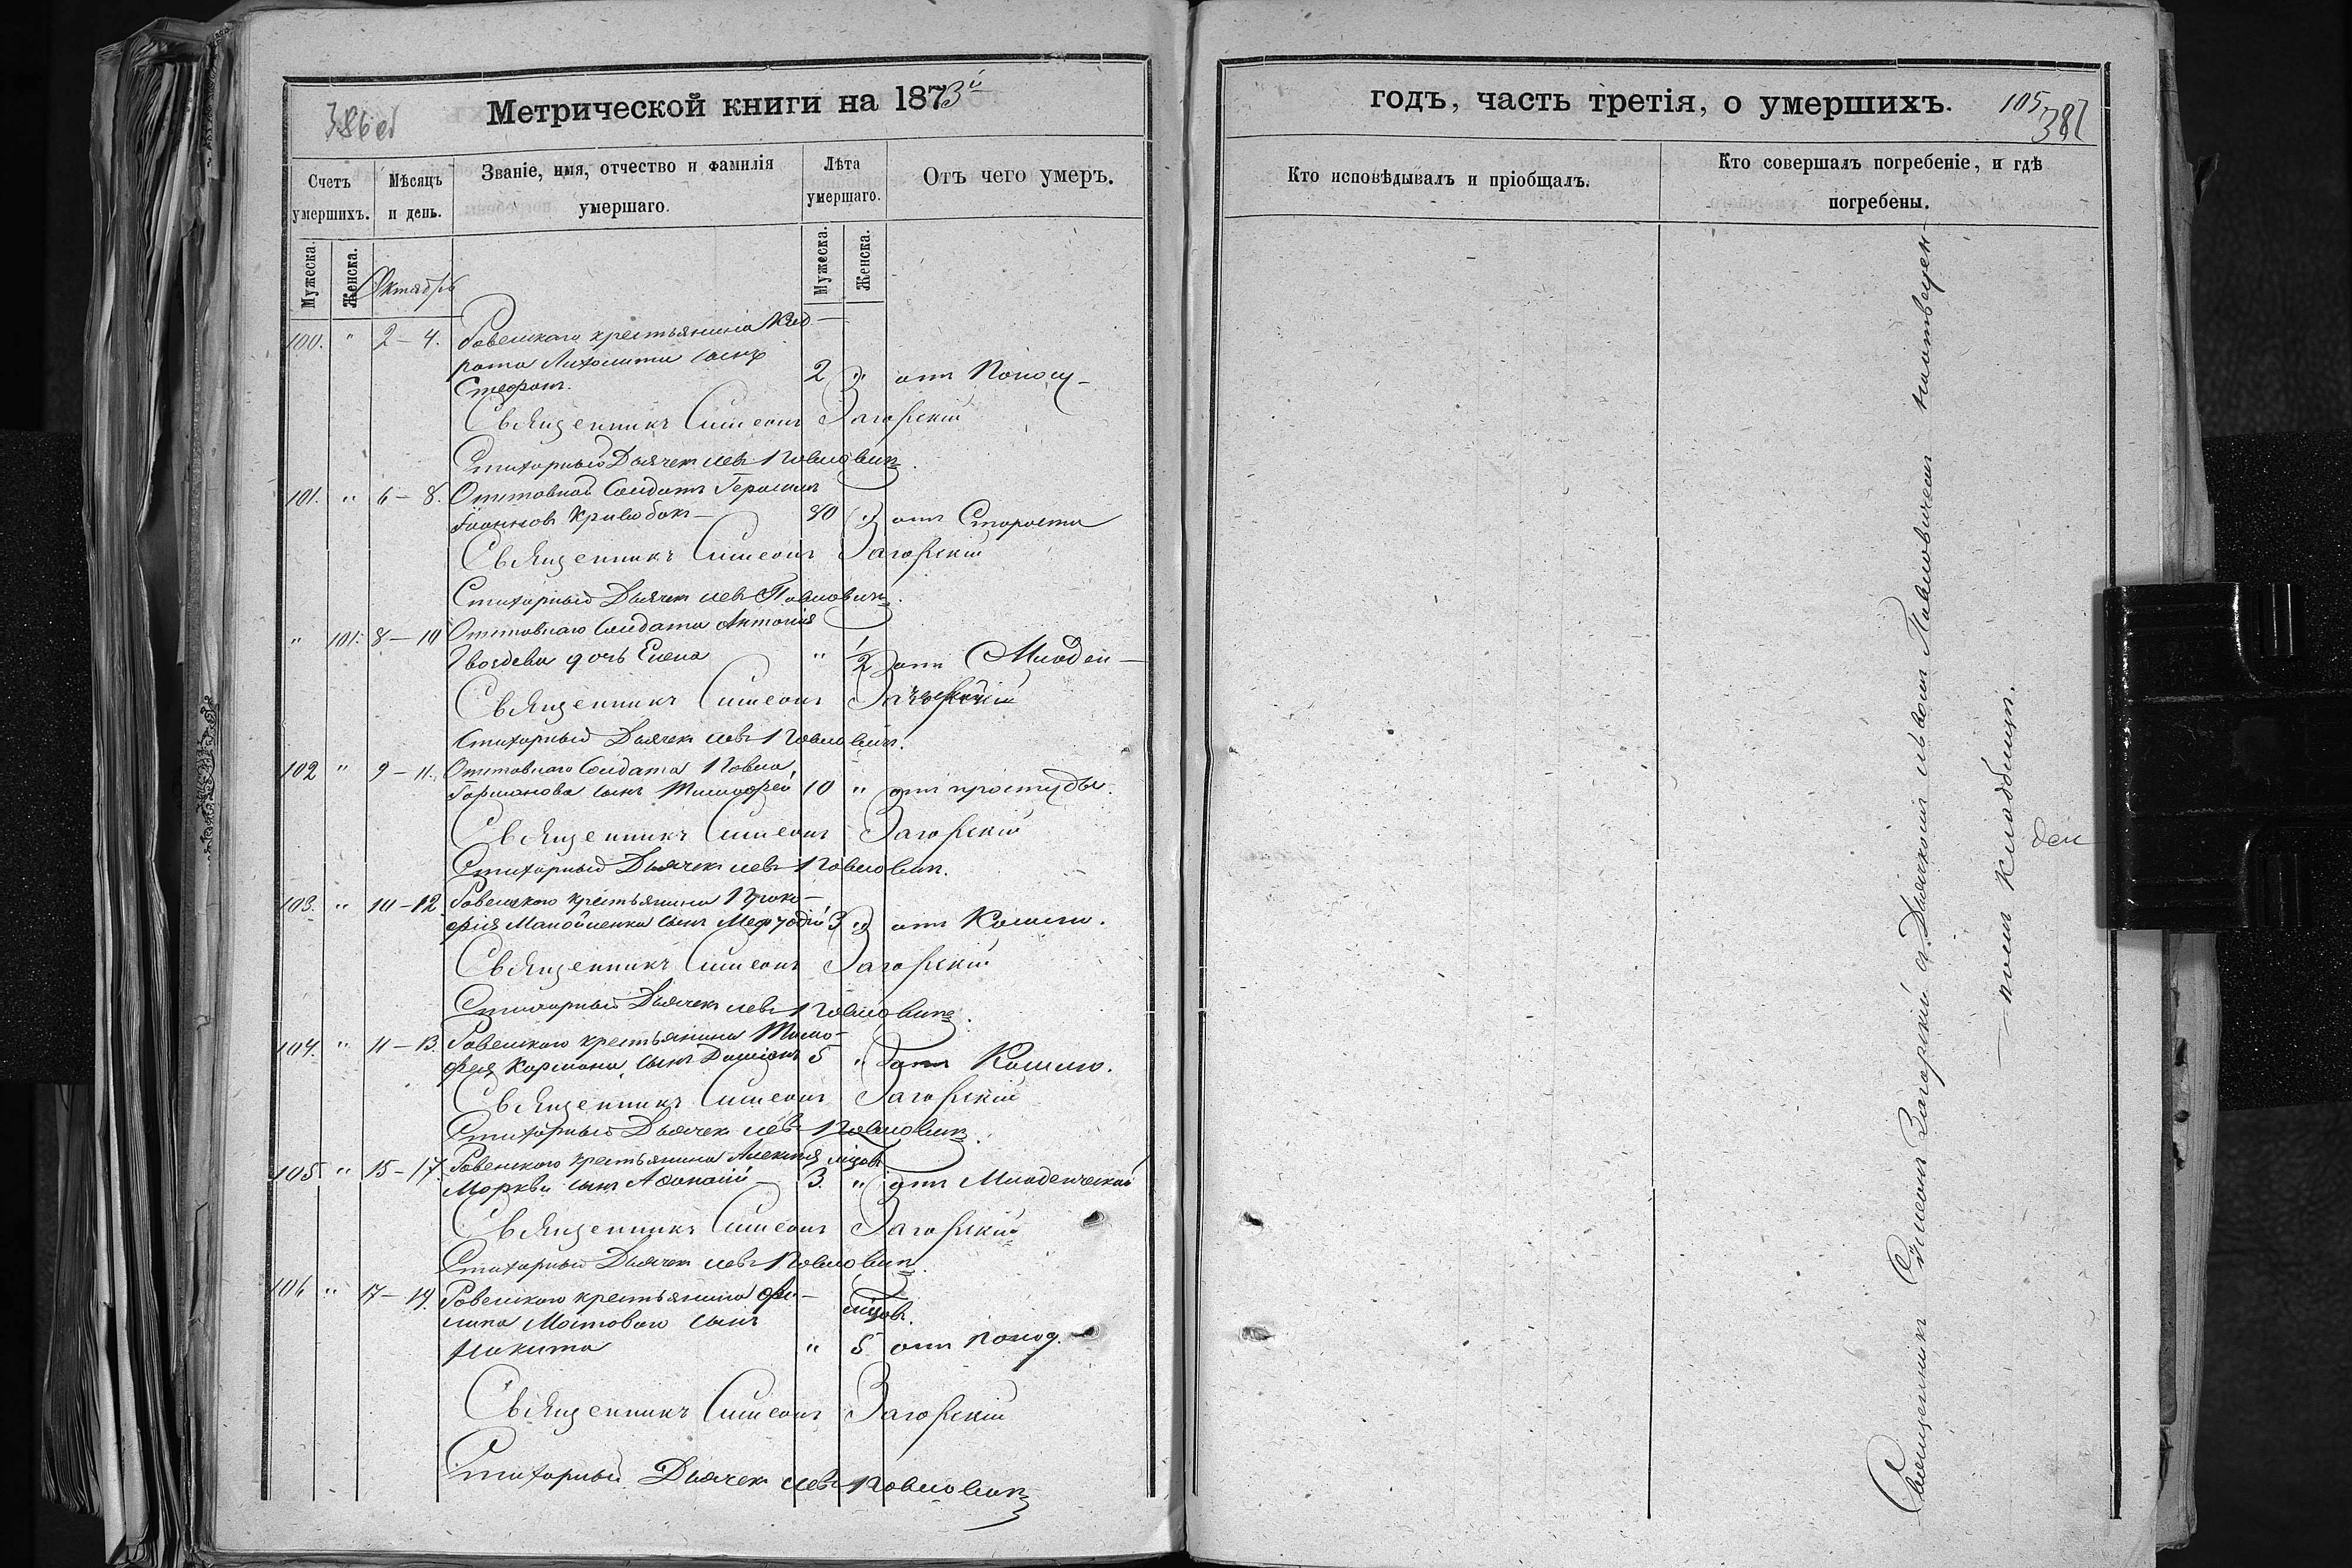 386об
Метрической книги на 1873й
Счетъ умершихъ.
Мѣсяцъ и день.
Званіе, имя, отчество и фамилія умершаго.
Лѣта умершаго.
Отъ чего умеръ.
Мужеска.
Женска.
Октябрь
Мужеска.
Женска.
100. " 2–4. Ровенскаго крестьянина Код-
рата сынъ
Стефанъ. 2 " отъ Поносу
Священникъ Симеонъ Загорскій
Стихарный Дьячекъ Левъ Павловичъ.
101. " 6–8. Отставной Солдатъ Герасимъ
Іоанновъ Кривобокъ 80 " отъ Старости
Священникъ Симеонъ Загорскій
Стихарный Дьячекъ Левъ Павловичъ.
" 101. 8–10 Отставнаго Солдата Антонія
Гвоздева дочь Елена " 1/2 отъ Младен-
Священникъ Симеонъ Загорскій
Стихарный Дьячекъ Левъ Павловичъ.
102 " 9–11. Отставнаго Солдата Павла
сынъ Тимофей 10 " отъ простуды.
Священникъ Симеонъ Загорскій
Стихарный Дьячекъ Левъ Павловичъ.
103. " 10–12. Ровенского крестьянина Проко-
фія Манойленка сынъ Мефодій 3 " отъ Кашлю.
Священникъ Симеонъ Загорскій
Стихарный Дьячекъ Левъ Павловичъ.
104. " 11–13. Ровенского крестьянина Тимо-
фея Кармана сынъ Даміанъ 5 " отъ Кашлю.
Священникъ Симеонъ Загорскій
Стихарный Дьячекъ Левъ Павловичъ.
105 " 15–17. Ровенского крестьянина Алексія мцов
Моркви сынъ Афанасій 3. " отъ Младенческой
Священникъ Симеонъ Загорскій
Стихарный Дьячекъ Левъ Павловичъ.
106 " 17–19. Ровенского крестьянина Фи-
липа Мостового сынъ мцов.
Никита " 5 отъ Понод.
Священникъ Симеонъ Загорскій
Стихарный Дьячекъ Левъ Павловичъ
годъ, часть третія, о умершихъ.
105
387
Кто исповѣдывалъ и пріобщалъ.
Кто совершалъ погребеніе, и гдѣ погребены.
Священникъ Симеонъ Загорскій съ Дьячкомъ Львомъ Павловичемъ
номъ Кладбищи.